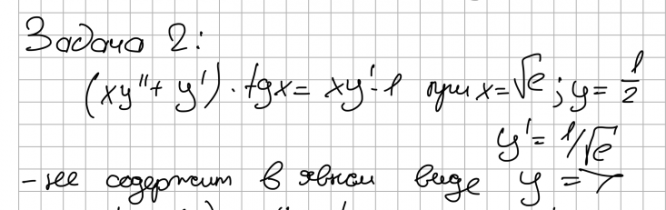 Задача 2:
(xy'' + y') · tgx = xy' - 1 при x = √e ; y = 1/2
y' = 1/√e
- не содержит в явном виде y ⇒